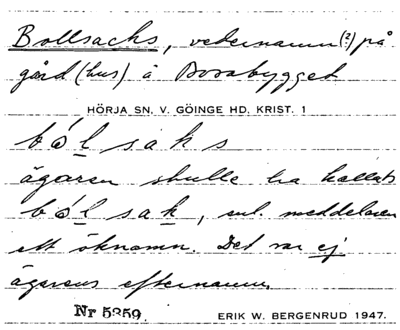 Bollsacks, veternamn (?) på
gård (hus) å Boarabygget
HÖRJA SN. V. GÖINGE HD. KRIST. 1
bó̱l s a k s
ägaren skulle ha kallats
bó̱l s a ḵ, enl. meddelaren
ett öknamn. Det var ej
ägarens efternamn.
Nr 5259 ERIK W. BERGENRUD 1947.